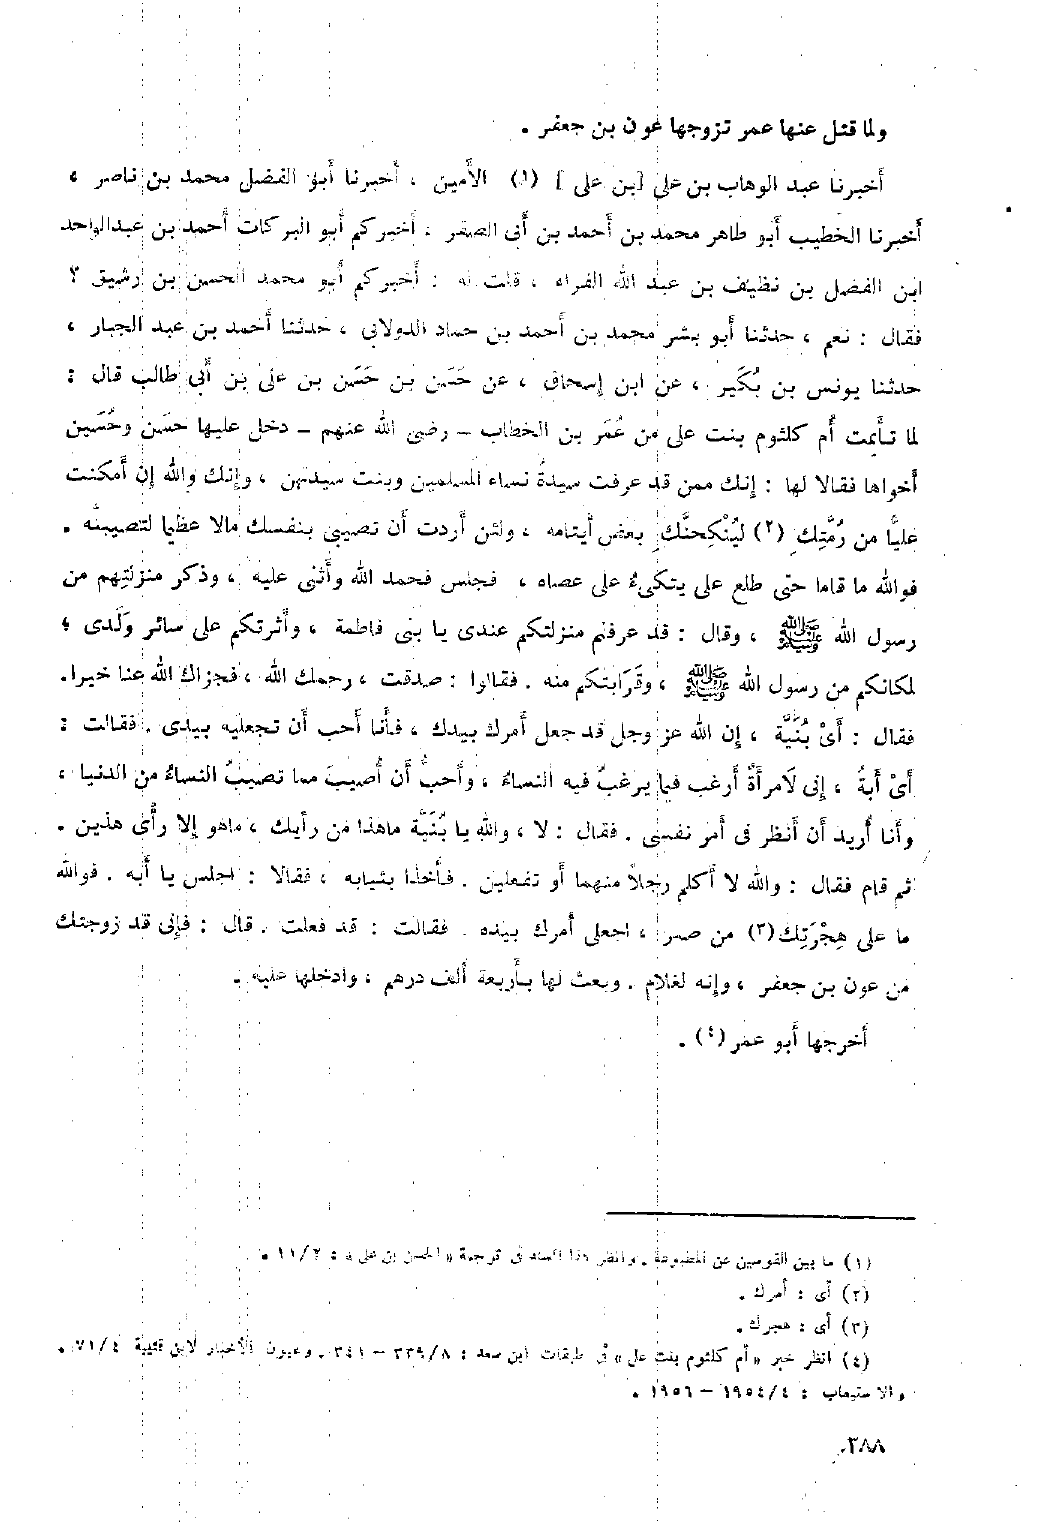 ولما قتل عنها عمر تزوجها عون بن جعفر .
أخبرنا عبد الوهاب بن على [بن على] (١) الأمين ، أخبرنا أبو الفضل محمد بن ناصر ،
أخبرنا الخطيب أبو طاهر محمد بن أحمد بن أبى الصقر ، أخبركم أبو البركات أحمد بن عبدالواحد
ابن الفضل بن نظيف بن عبد الله الفراء ، قلت له : أخبركم أبو محمد الحسن بن رشيق ؟
فقال : نعم ، حدثنا أبو بشر محمد بن أحمد بن حماد الدولابى ، حدثنا أحمد بن عبد الجبار ،
حدثنا يونس بن بُكَير ، عن ابن إسحاق ، عن حَسَن بن حَسَن بن على بن أبى طالب قال :
لما تأيمت أُم كلثوم بنت على من عُمَر بن الخطاب – رضى الله عنهم – دخل عليها حسَن وحُسَين
أخواها فقالا لها : إنك ممن قد عرفت سيدةُ نساء المسلمين وبنت سيدتهن ، وإنك والله إن أمكنت
عليًّا من رُمَّتِك (٢) ليُنْكِحنَّك بعض أيتامه ، ولئن أردت أن تصيبى بنفسك مالا عظيما لتصيبنّه .
فوالله ما قاما حتى طلع على يتكىءُ على عصاه ، فجلس فحمد الله وأثنى عليه ، وذكر منزلتهم من
رسول الله ﷺ ، وقال : قد عرفتم منزلتكم عندى يا بنى فاطمة ، وأثرتكم على سائر وَلَدى ؛
لمكانكم من رسول الله ﷺ ، وقَرَابتكم منه . فقالوا : صدقت ، رحمك الله ، فجزاك الله عنا خيرا.
فقال : أىْ بُنَيَّة ، إن الله عز وجل قد جعل أمرك بيدك ، فأنا أحب أن تجعليه بيدى . فقالت :
أىْ أبةُ ، إنى لَامرأَةٌ أرغب فيما يرغبُ فيه النساءُ ، وأحبُّ أن أُصيبَ مما تصيبُ النساءُ من الدنيا ،
وأنا أُريد أن أنظر فى أمر نفسى . فقال : لا ، والله يا بُنَيَّة ماهذا من رأيك ، ماهو إلا رأْى هذين .
ثم قام فقال : والله لا أُكلم رجلاً منهما أو تفعلين . فأخذا بثيابه ، فقالا : اجلس يا أبه . فوالله
ما على هِجْرَتِك (٣) من صبر ، اجعلى أمرك بيده . فقالت : قد فعلت . قال : فإنى قد زوجتك
من عون بن جعفر ، وإنه لغلام . وبعث لها بأربعة ألف درهم ، وأدخلها عليه .
أخرجها أبو عمر (٤) .
(١) ما بين القوسين عن المطبوعة . وانظر هذا السند فى ترجمة « الحسن بن على » : ١١/٢ .
(٢) أى : أمرك .
(٣) أى : هجرك .
(٤) انظر خبر « أم كلثوم بنت على » فى طبقات ابن سعد : ٣٣٩/٨ – ٣٤١ . وعيون الأخبار لابن قتيبة ٧١/٤ .
والاستيعاب : ١٩٥٤/٤ – ١٩٥٦ .
٣٨٨